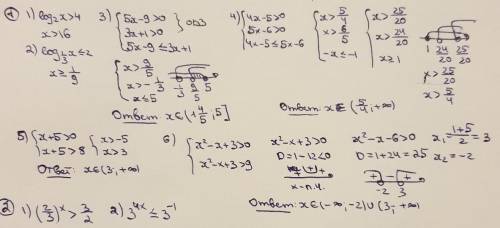 ① 1) log₂x>4
x>16
2) log_{1/3} x ≤ 2
x ≥ 1/9
3) { 5x-9>0
3x+1>0
5x-9≤3x+1 } ОДЗ
{ x> 9/5
x>- 1/3
x≤5
-1/3 9/5 5
Ответ x∈(1 4/5, 5]
4) { 4x-5>0
5x-6>0
4x-5≤5x-6
{ x> 5/4
x> 6/5
-x≤-1
{ x> 25/20
x> 24/20
x≥1
1 24/20 25/20
x> 25/20
x> 5/4
Ответ: x∈(5/4, +∞)
5) { x+5>0
x+5>8
{ x>-5
x>3
Ответ: x∈(3, +∞)
6) { x²-x+3>0
x²-x+3>9
x²-x+3>0
D=1-12<0
x-л.ч.
x²-x-6>0
D=1+24=25
x₁= (1+5)/2 =3
x₂=-2
+ - +
-2 3
Ответ: x∈(-∞, -2)∪(3, +∞)
② 1) (2/3)ˣ > 3/2 2) 3⁴ˣ ≤ 3⁻¹